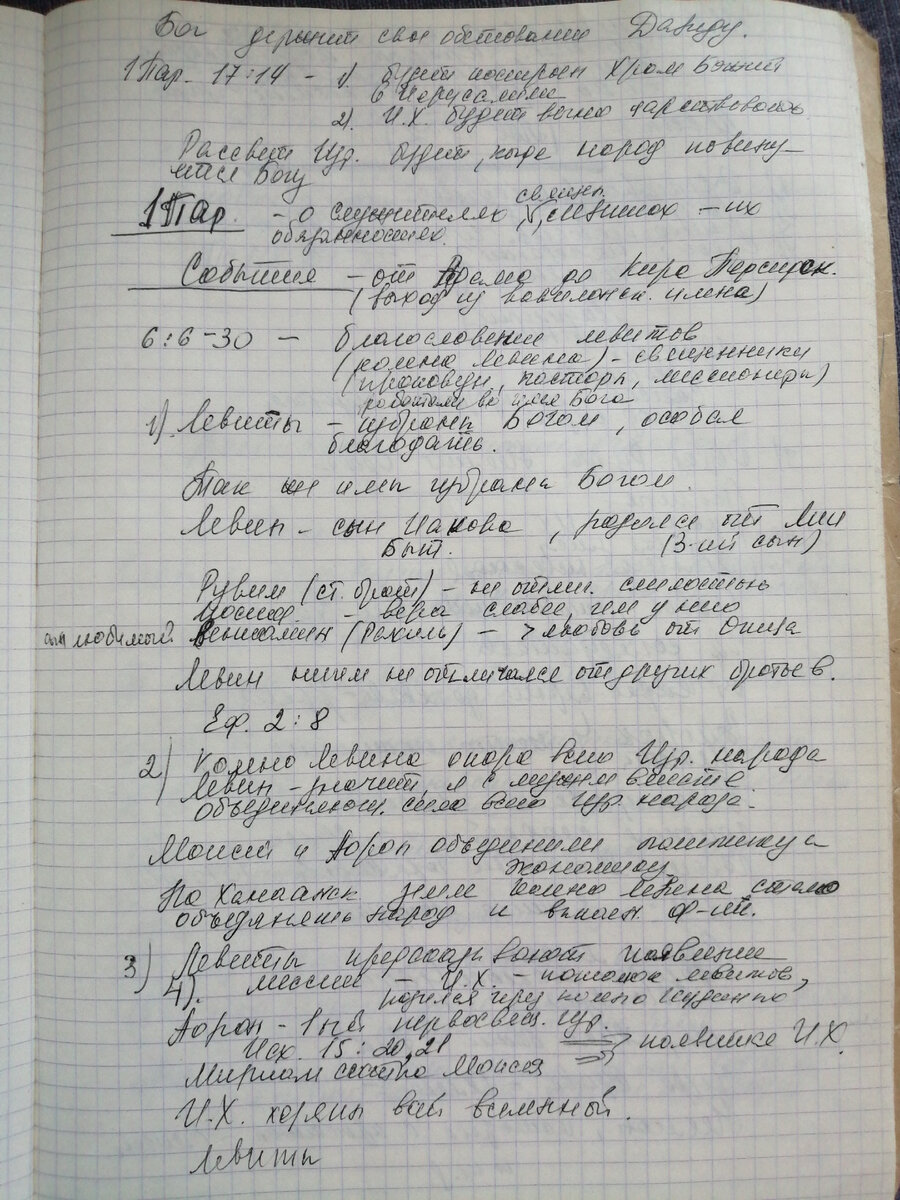 Бог держит свои обетования Давиду.
1 Пар. 17:14 - 1) будет построен Храм Божий
в Иерусалиме
2). И.Х. будет вечно царствовать
Рассвет Изр. будет, когда народ повину-
ется Богу
1 Пар. - о служителях, свящ., левитах - их
обязанностях.
События - от Адама до Кира Персидск.
(выход из вавилонск. плена)
6:6-30 - благословение левитов
(колена Левина) - священники
(проповедн, пасторы, миссионеры)
работали во имя Бога
1) Левиты - избраны Богом, особая
благодать.
Так же и мы избраны Богом.
Левий - сын Иакова, родился от Лии
Быт. (3-ий сын)
Рувим (ст. брат) - не отлич. смелостью
Иосиф - вера слабее, чем у него
любимый Вениамин (Рахиль) - > любовь от Отца
Левин ничем не отличался от других братьев.
Еф. 2:8
2) Колено Левина опора всего Изр. народа
Левин - значит, я с мужем вместе
объединяющ. сила всего Изр. народа.
Моисей и Аарон объединили политику и
экономику
По Ханаанск земле колено Левина стало
объединять народ и выполн. ф-ии.
3) Левиты предсказывают появление
4). мессии - И.Х. - потомок левитов,
родился через колено Иудино
Аарон - 1ый первосвящ. Изр.
Исх. 15:20,21 появление И.Х.
Мириам сестра Моисея
И.Х. хозяин всей вселенной.
Левиты